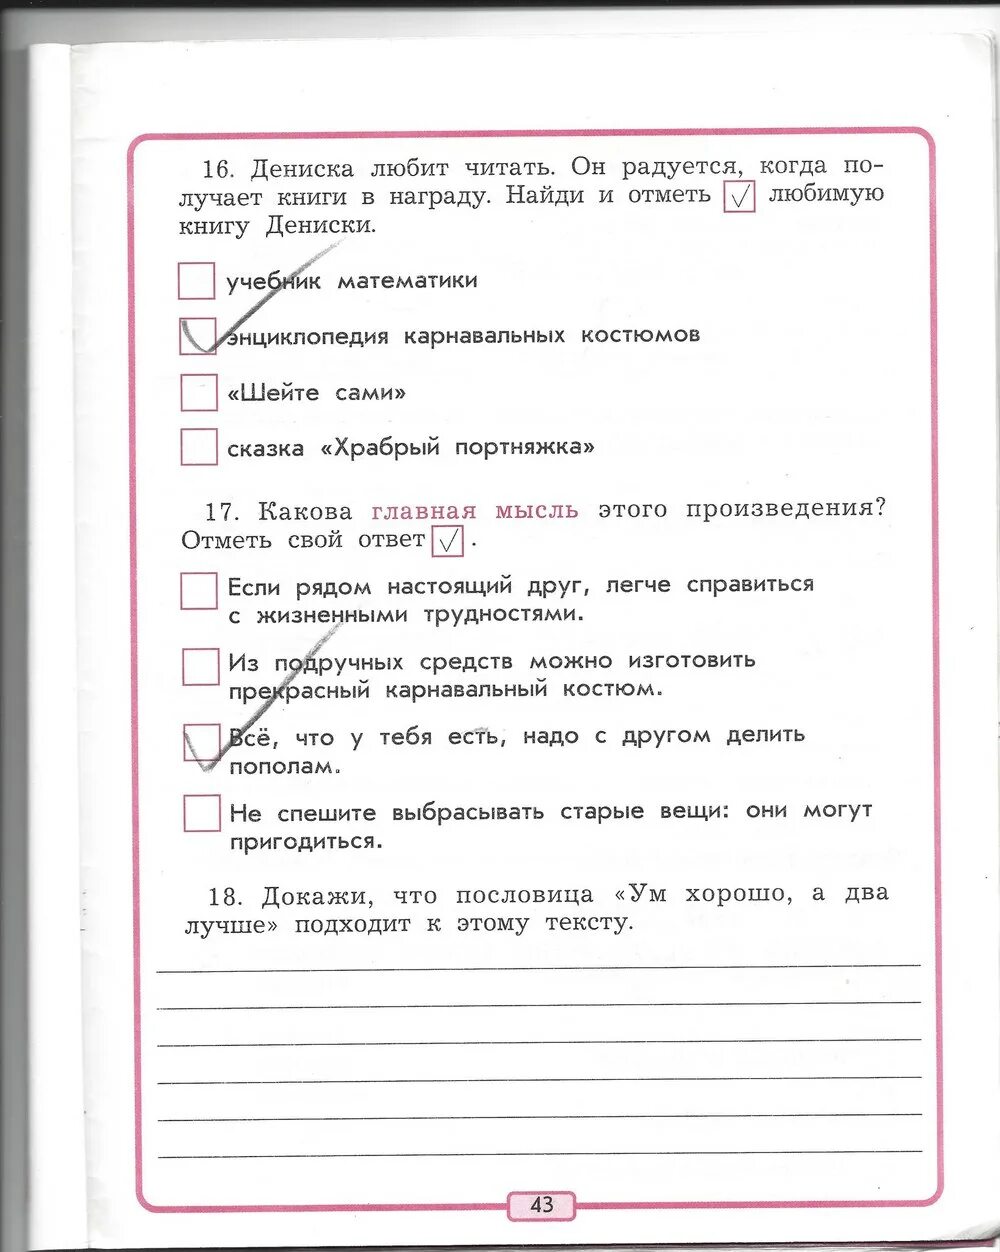 16. Дениска любит читать. Он радуется, когда по-
лучает книги в награду. Найди и отметь ✓ любимую
книгу Дениски.
учебник математики
энциклопедия карнавальных костюмов
«Шейте сами»
сказка «Храбрый портняжка»
17. Какова главная мысль этого произведения?
Отметь свой ответ ✓.
Если рядом настоящий друг, легче справиться
с жизненными трудностями.
Из подручных средств можно изготовить
прекрасный карнавальный костюм.
Всё, что у тебя есть, надо с другом делить
пополам.
Не спешите выбрасывать старые вещи: они могут
пригодиться.
18. Докажи, что пословица «Ум хорошо, а два
лучше» подходит к этому тексту.
43